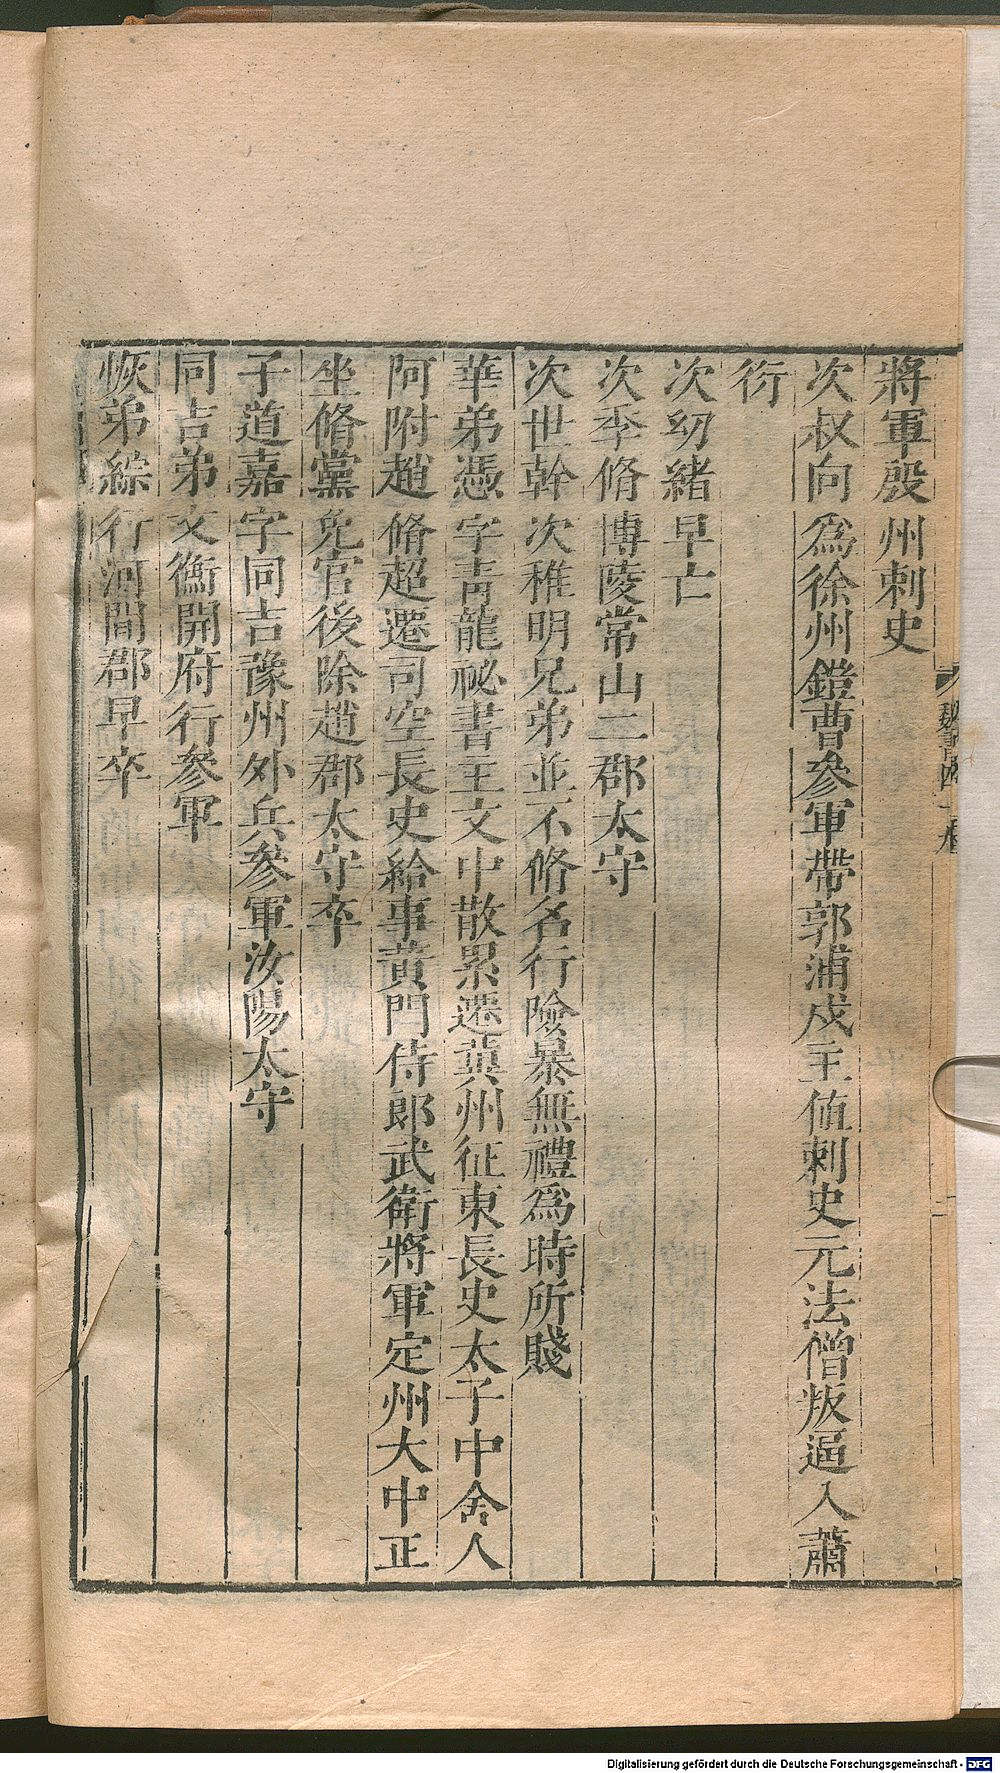 將軍殷州刺史
次叔向爲徐州鎧曹參軍帶郭浦戍主值刺史元法僧叛逼入蕭
衍
次幼緒早亡
次季脩博陵常山二郡太守
次世幹次稚明兄弟並不脩名行險暴無禮爲時所賤
華弟憑字靑龍祕書主文中散累遷冀州征東長史太子中舍人
阿附趙脩超遷司空長史給事黃門侍郎武衛將軍定州大中正
坐脩黨免官後除趙郡太守卒
子道嘉字同吉豫州外兵參軍汝陽太守
同吉弟文衡開府行參軍
恢弟綜行河間郡早卒
Digitalisierung gefördert durch die Deutsche Forschungsgemeinschaft - DFG